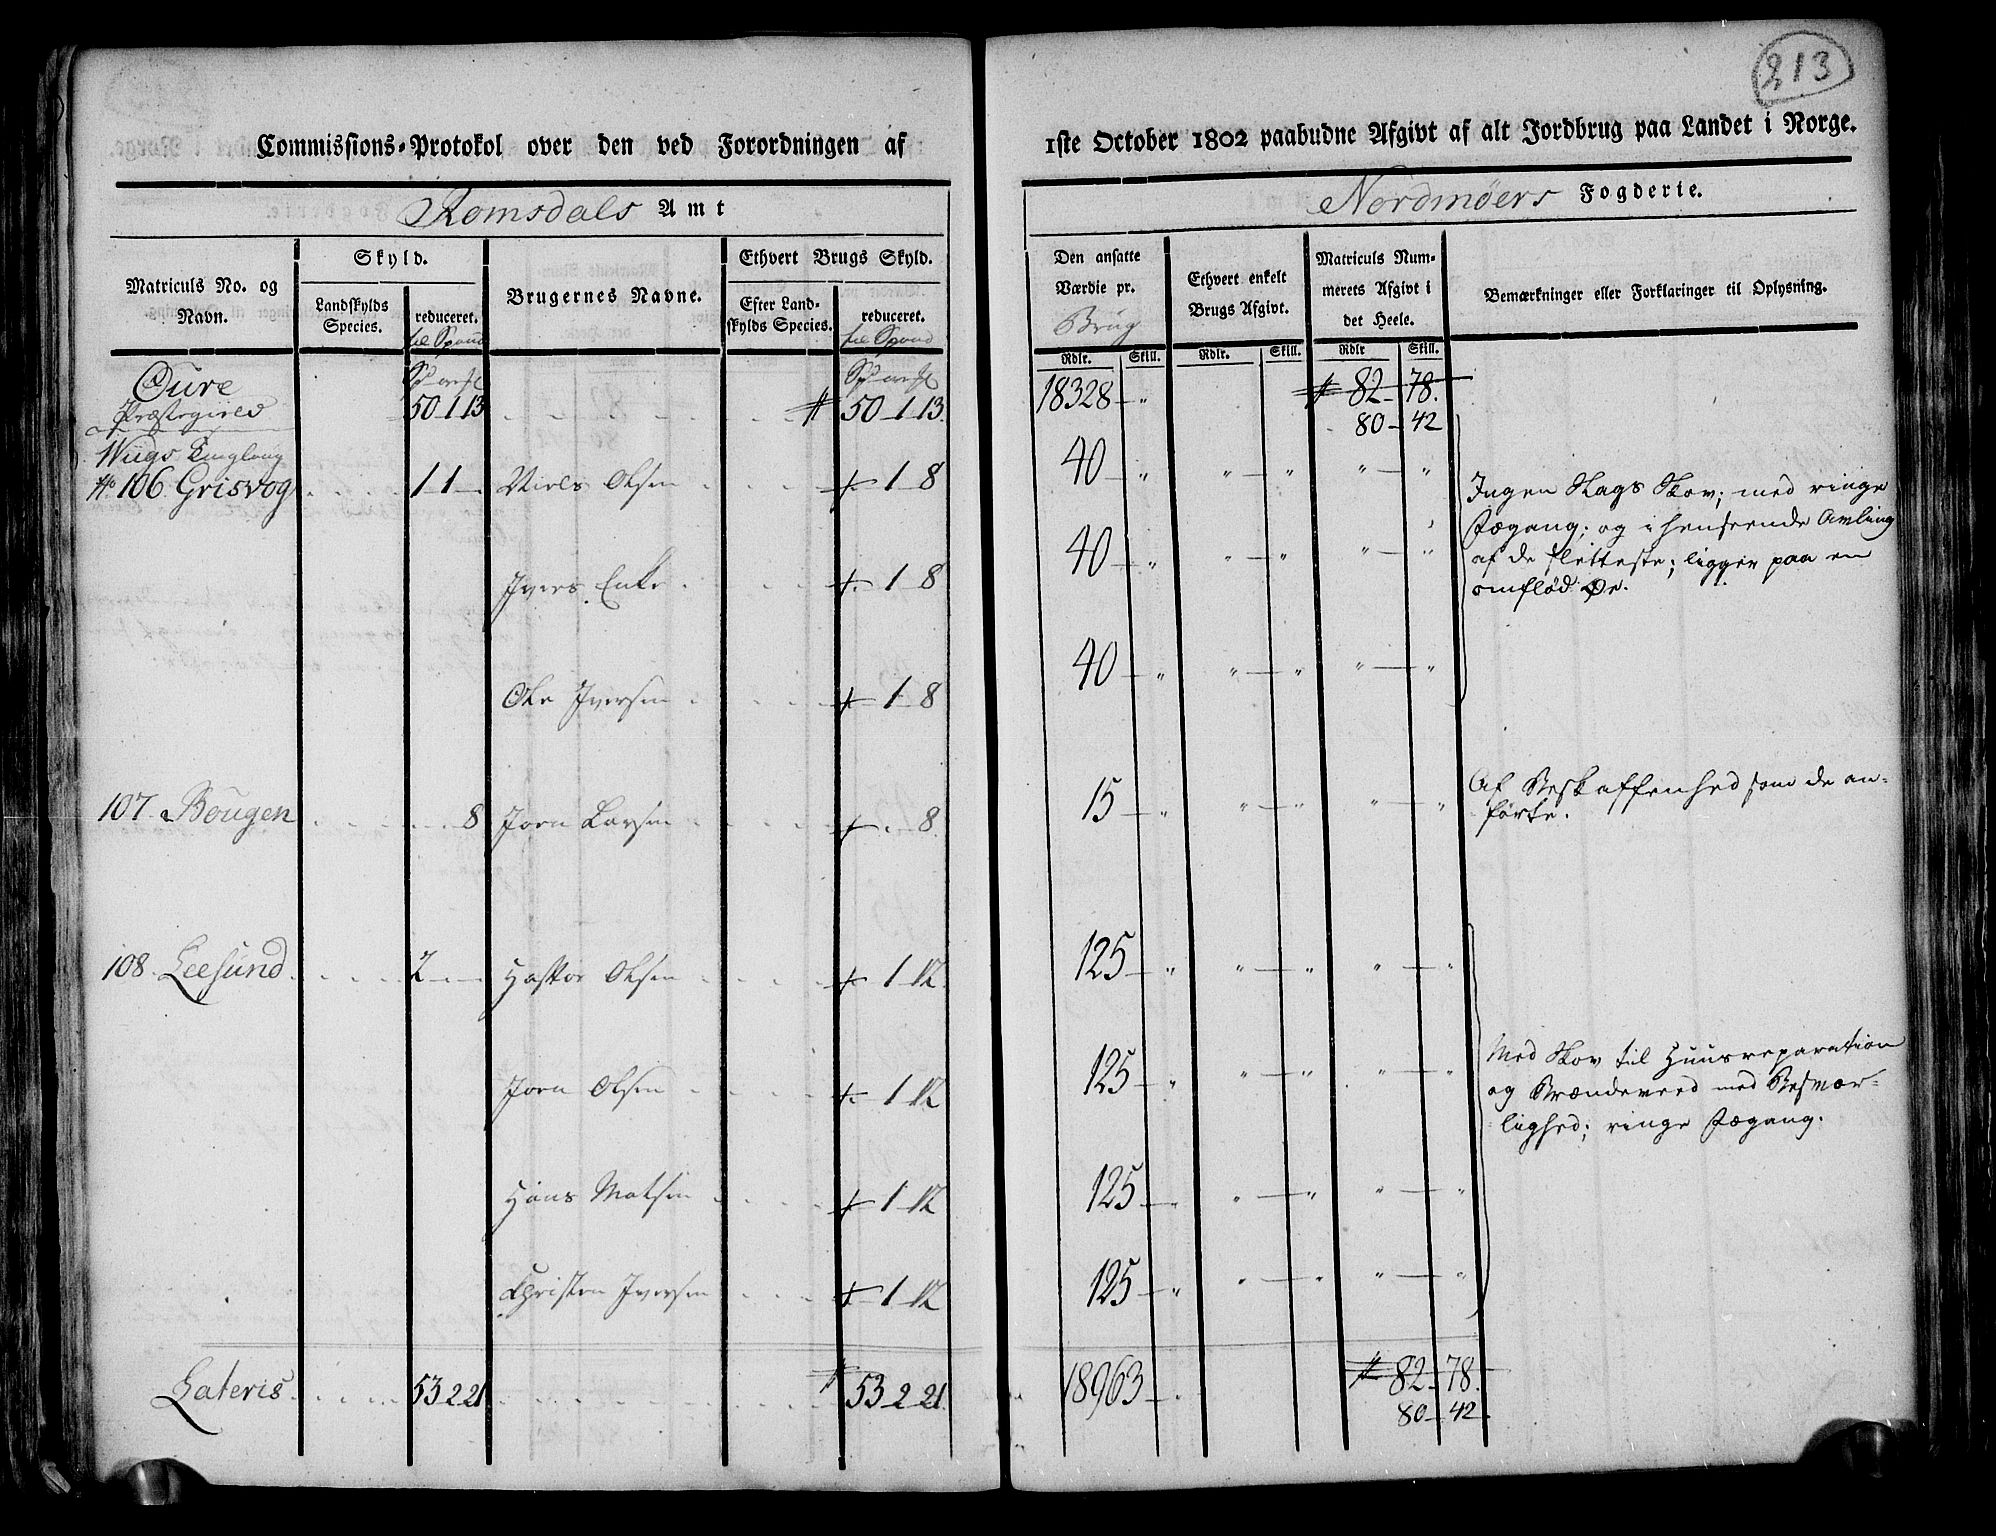 213
Commissions-Protokol over den ved Forordningen af 1ste October 1802 paabudne Afgivt af alt Jordbrug paa Landet i Norge.
Romsdals Amt
Nordmøers Fogderie.
Matriculs No. og Navn.
Skyld.
Landskylds Species.
reduceret.
til Spand
Brugernes Navne.
Ethvert Brugs Skyld.
Efter Landskylds Species.
reduceret.
til Spand
Den ansatte Værdie pr.
Brug
Rdlr. Skill.
Ethvert enkelt Brugs Afgivt.
Rdlr. Skill.
Matriculs Nummerets Afgivt i det Heele.
Rdlr Skill.
Bemærkninger eller Forklaringer til Oplysning.
Øure
Præstegield
50 1 13 50 1 13 18328 " 82 78.
80 42
No 106 Grisvog 1 1 Niels Olsen 1 8 40 " " " " "
Ivers Enke 1 8 40 " " " " "
Ole Iversen 1 8 40 " " " " "
Ingen Slags Skov; med ringe
Fægang; og i henseende Avling
af de sletteste; ligger paa en
omflød Øe.
107. Bougen 8 Jorn Larsen 8. 15 " " " " "
Af Beskaffenhed som de an-
førte.
108. Leesund 2 Haftor Olsen 1 12. 125 " " " " "
Jorn Olsen 1 12 125 " " " " "
Hans Matsen 1 12 125 " " " " "
Christen Iversen 1 12 125 " " " " "
Med Skov til Huusreparation
og Brændeveed med Besvær-
lighed; ringe Fægang.
Lateris 53 2 21 53 2 21. 18963 82 78.
80 42